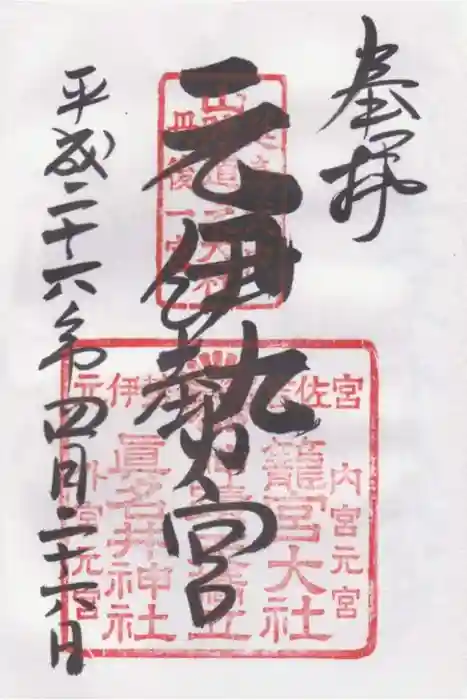 奉拝
元伊勢宮
平成二十六年四月二十六日
丹後一宮
宮
元伊勢
籠宮大社
眞名井神社
内宮元宮
外宮元宮